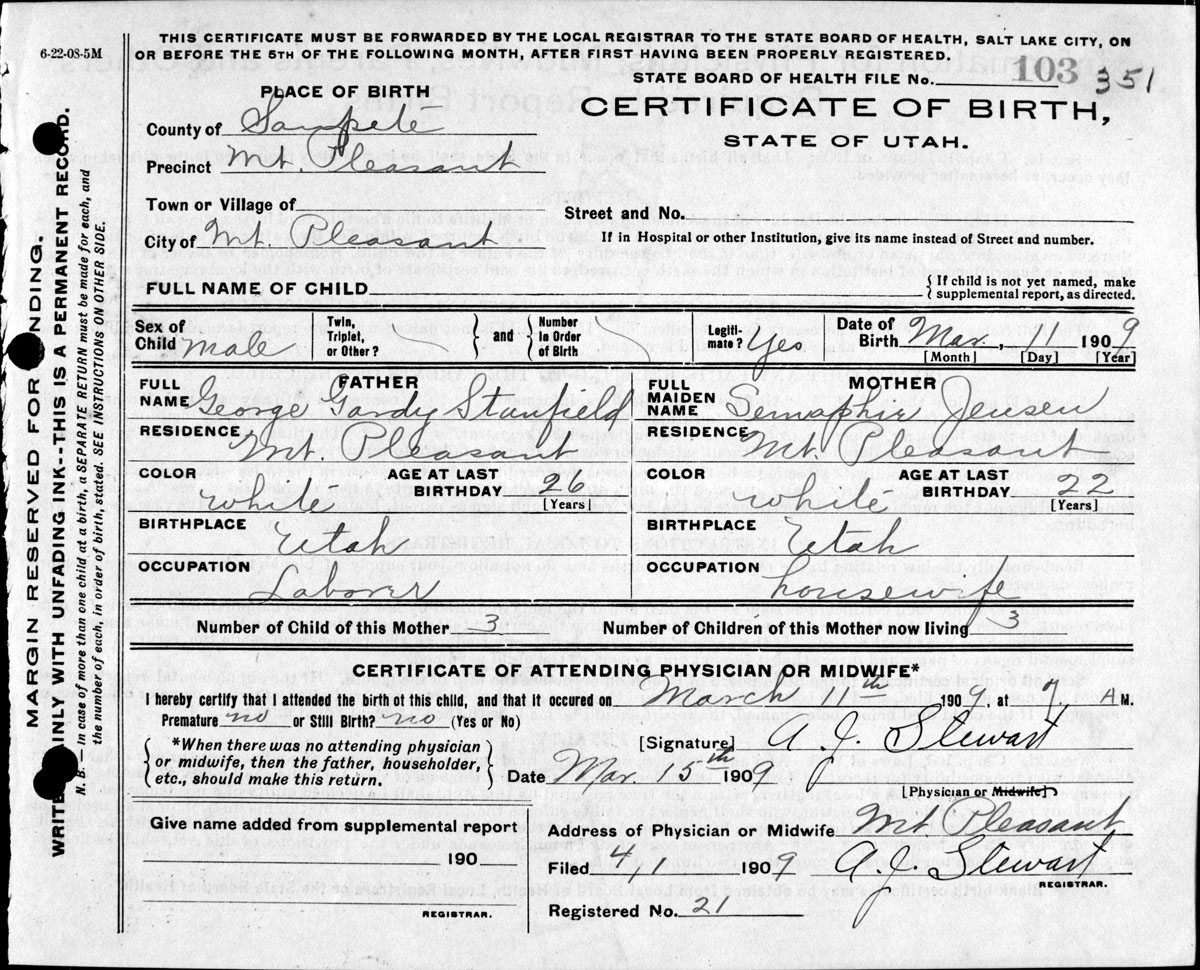 6-22-08-5M
THIS CERTIFICATE MUST BE FORWARDED BY THE LOCAL REGISTRAR TO THE STATE BOARD OF HEALTH, SALT LAKE CITY, ON
OR BEFORE THE 5TH OF THE FOLLOWING MONTH, AFTER FIRST HAVING BEEN PROPERLY REGISTERED.
STATE BOARD OF HEALTH FILE No. 103 351
PLACE OF BIRTH
CERTIFICATE OF BIRTH,
STATE OF UTAH.
County of Sanpete
Precinct Mt. Pleasant
Town or Village of
Street and No.
City of Mt. Pleasant
If in Hospital or other Institution, give its name instead of Street and number.
FULL NAME OF CHILD
{ If child is not yet named, make
supplemental report, as directed.
Sex of Child male
Twin, Triplet, or Other?
} and {
Number in Order of Birth
Legitimate? Yes
Date of Birth Mar. 11 1909
[Month] [Day] [Year]
FATHER
FULL NAME George Gardy Stanfield
RESIDENCE Mt. Pleasant
COLOR White
AGE AT LAST BIRTHDAY 26
[Years]
BIRTHPLACE Utah
OCCUPATION Laborer
MOTHER
FULL MAIDEN NAME Semaphie Jensen
RESIDENCE Mt. Pleasant
COLOR White
AGE AT LAST BIRTHDAY 22
[Years]
BIRTHPLACE Utah
OCCUPATION housewife
Number of Child of this Mother 3
Number of Children of this Mother now living 3
CERTIFICATE OF ATTENDING PHYSICIAN OR MIDWIFE*
I hereby certify that I attended the birth of this child, and that it occured on March 11th 1909, at 7, A M.
Premature no or Still Birth? no (Yes or No)
*When there was no attending physician
or midwife, then the father, householder,
etc., should make this return.
[Signature] A. J. Stewart
Date Mar. 15th 1909
[Physician or Midwife]
Give name added from supplemental report
190
REGISTRAR.
Address of Physician or Midwife Mt Pleasant
Filed 4, 1 1909 A. J. Stewart
REGISTRAR.
Registered No. 21
MARGIN RESERVED FOR NDING.
WRITE INLY WITH UNFADING INK--THIS IS A PERMANENT RECORD.
N. B. — In case of more than one child at a birth, a SEPARATE RETURN must be made for each, and
the number of each, in order of birth, stated. SEE INSTRUCTIONS ON OTHER SIDE.